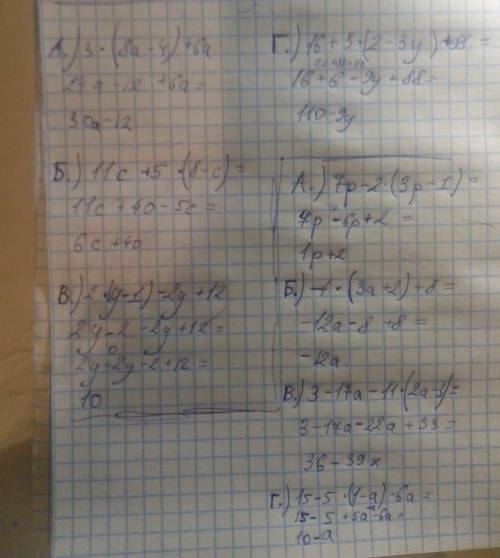 А.) 3·(8a-4)+6a
24a-12+6a=
30a-12
Б.) 11c+5·(8-c)=
11c+40-5c=
6c+40
В.) 2·(y-1)-2y+12
2y-2-2y+12=
2y-2y-2+12=
10
Г.) 16+3·(2-3y)+88=
16+6-9y+88=
110-9y
А.) 7p-2·(3p-1)=
7p-6p+2=
1p+2
Б.) -4·(3a+2)+8=
-12a-8+8=
-12a.
В.) 3-17a-11·(2a-3)=
3-17a-22a+33=
36-39x
Г.) 15-5·(1-a)-6a=
15-5+5a-6a=
10-a